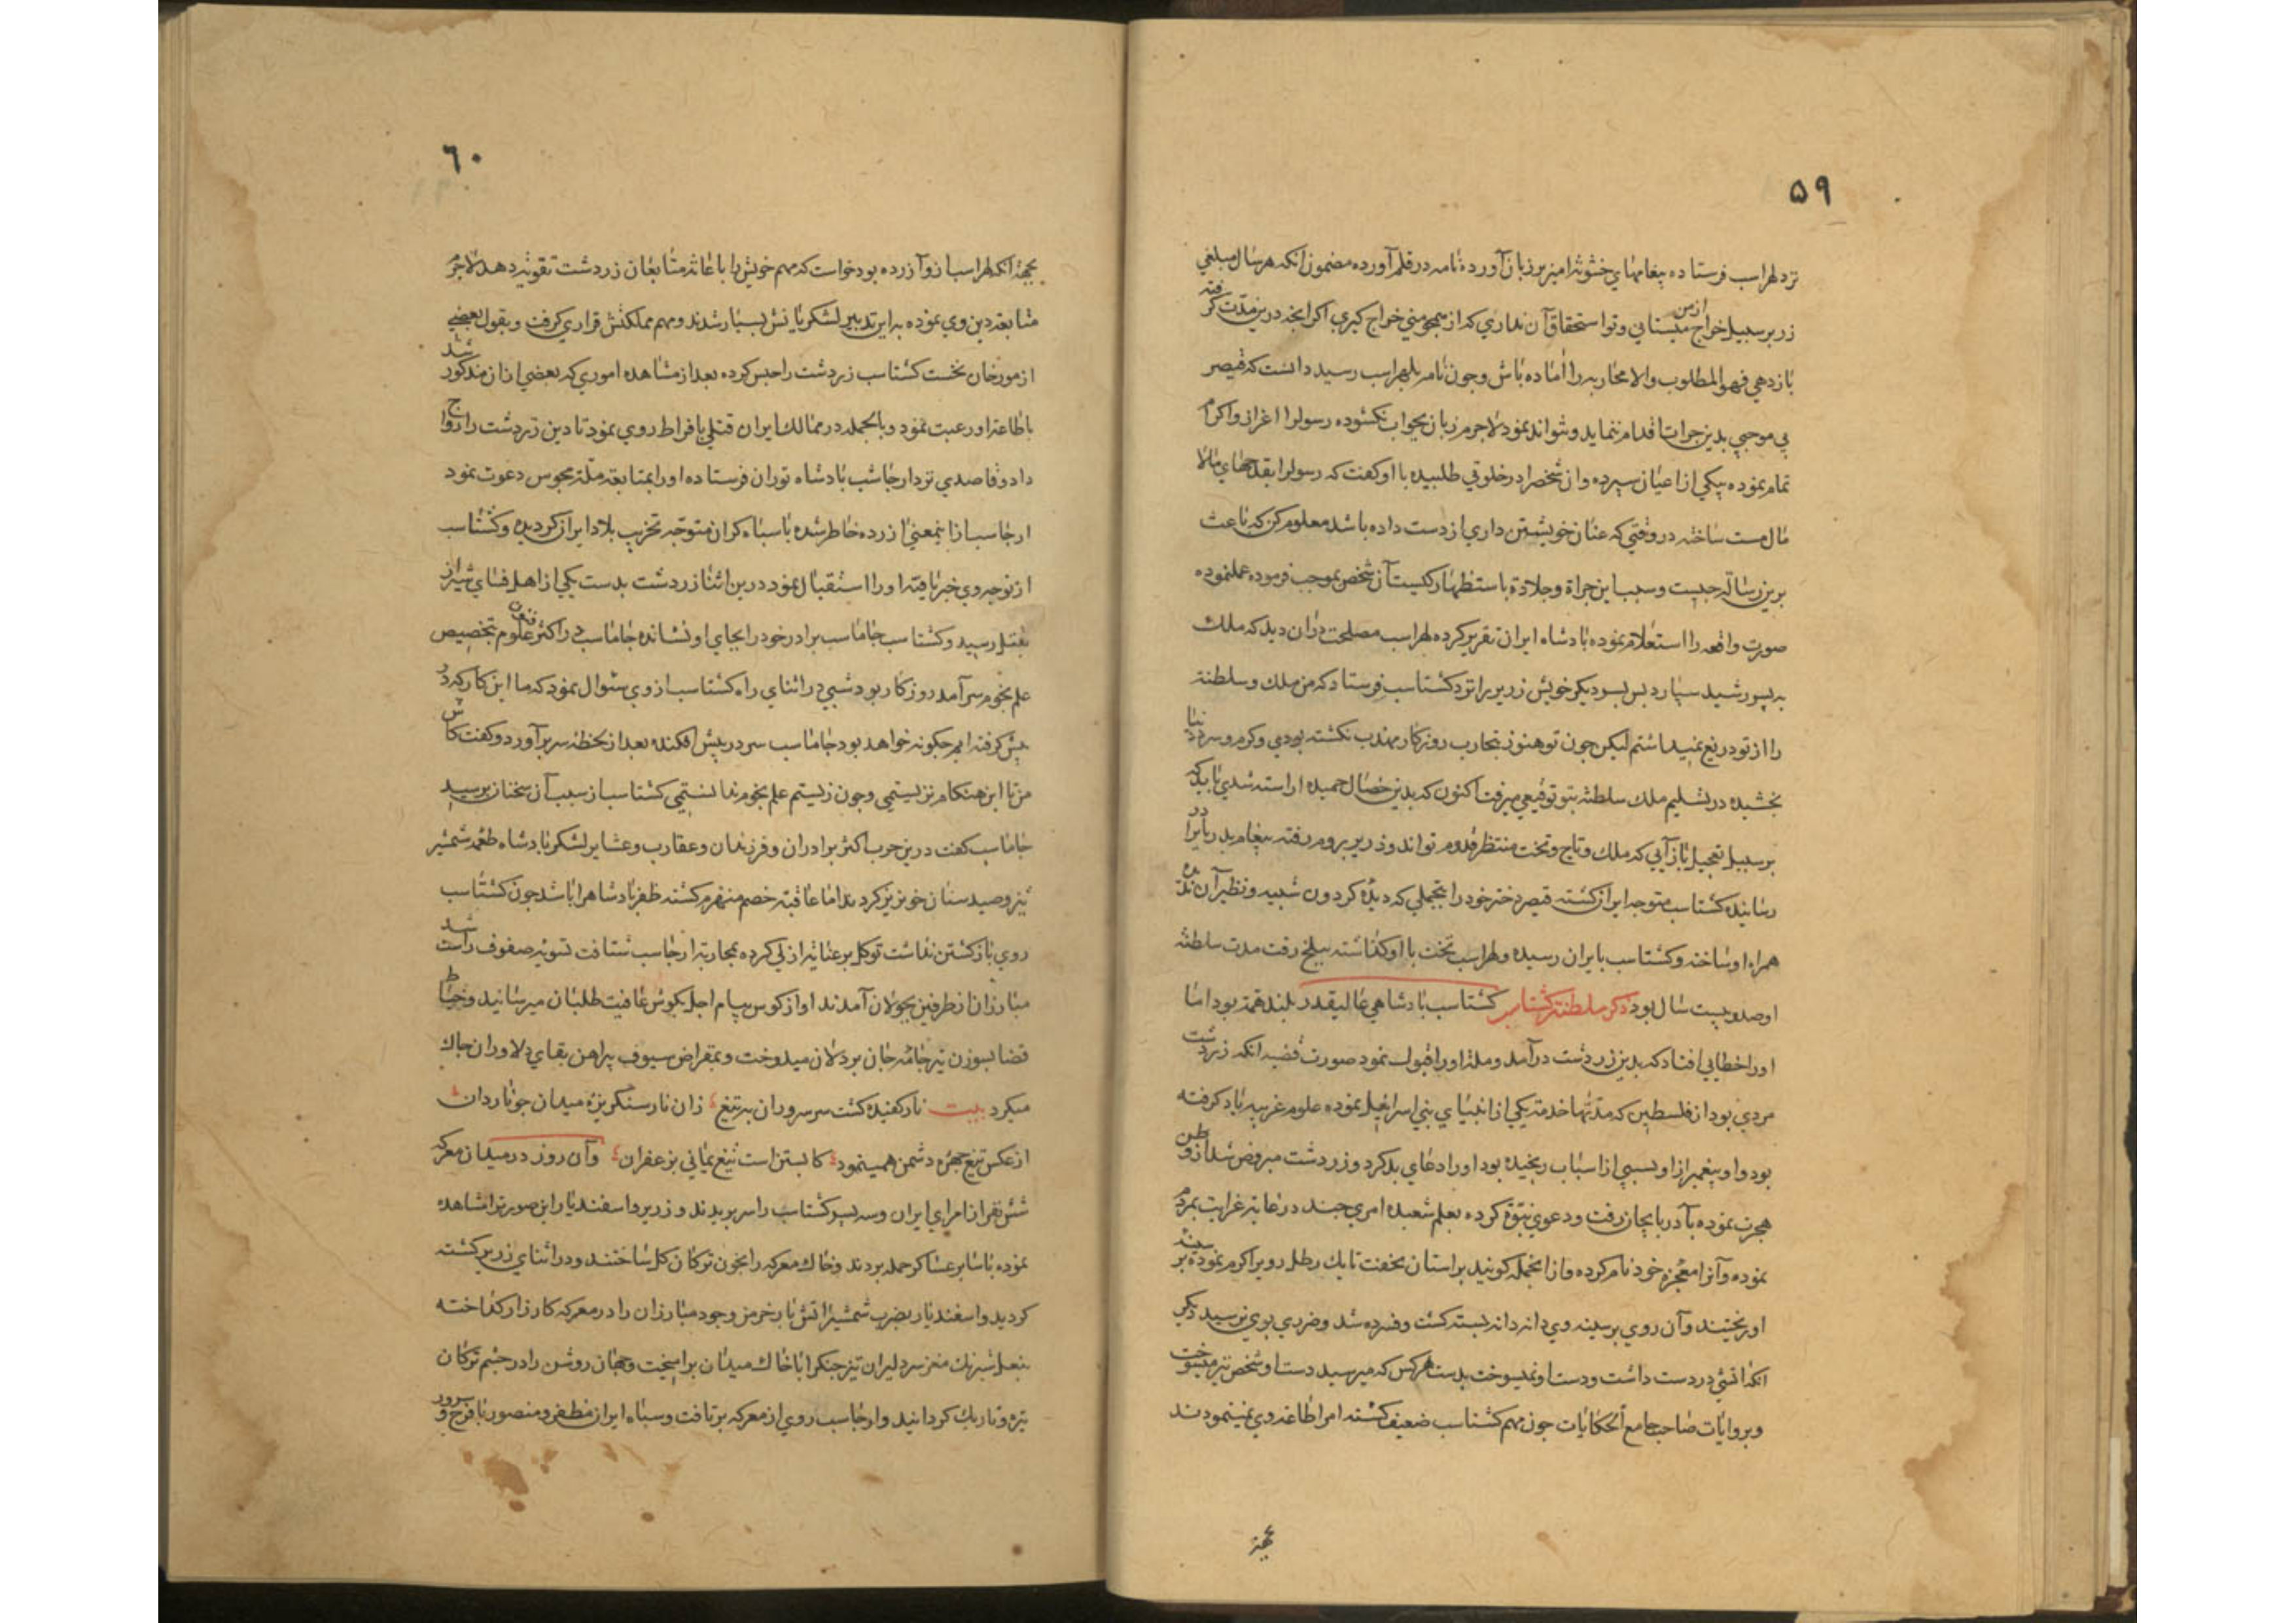 ۵۹
نزد لهراسب فرستاده پیغامهای خشونة امیز بر زبان آورده نامه در قلم آورده مضمون انکه هر سال مبلغی
زر بر سبیل خراج از من میستانی و تو استحقاق آن نداری که از همچو منی خراج کیری اکر انچه درین مدت کرفته
بازدهی فهو المطلوب والا محاربه را اماده باش وجون نامه بلهراسب رسید دانست که قیصر
بی موجبی بدین جرات اقدام ننماید ونتواند نمود لاجرم زبان بجواب نکشوده رسولرا اعزاز واکرام
تمام نموده بیکی از اعیان سپرده وان شخصرا در خلوتی طلبیده با او کفت که رسولرا بقدحهای مالا
مال مست ساخته در وقتی که عنان خویشتن داری از دست داده باشد معلوم کن که باعث
برین رسالة جیست وسبب این جراة وجلادة باستظهار کیست آن شخص بموجب فرموده عملنموده
صورت واقعه را استعلام نموده بادشاه ایران تقریر کرده لهراسب مصلحت دران دید که ملک
به پسر رشید سپارد بس پسر دیکر خویش زریر را نزد کشتاسب فرستاد که من ملک وسلطنة
را از تو دریغ نمیداشتم لیکن جون تو هنوز بتجارب روزکار مهذب نکشته بودی وکرم وسرد دنیا
نخشیده در تسلیم ملک سلطنة بتو توقیعی میرفت اکنون که بدین خصال حمیده اراسته شدی باید که
بر سبیل تعجیل باز آیی که ملک وتاج وتخت منتظر قدوم تواند وزریر بروم رفته پیغام پدر برادر
رسانیده کشتاسب متوجه ایران کشته قیصر دختر خود را بتجملی که دیده کردون شبیه ونظیر آن ندیده
همراه او ساخته وکشتاسب بایران رسیده ولهراسب تخت با او کذاشته ببلخ رفت مدت سلطنة
او صد وبیست سال بود ذکر سلطنة کشتاسب کشتاسب بادشاهی عالیقدر بلند همة بود اما
اورا خطایی افتاد که بدین زردشت درآمد وملة اورا قبول نمود صورت قضیه انکه زردشت
مردی بود از فلسطین که مدتها خدمة یکی از انبیای بنی اسرائیل نموده علوم غریبه یاد کرفته
بود واو پیغمبر ازاو بسببی از اسباب رنجیده بود اورا دعای بد کرد وزردشت مبروص شد از وطن
هجرت نموده بآدربایجان رفت ودعوی نبوة کرده بعلم شعبده امری جند در غایة غرابت بمردم
نموده وآنرا معجزه خود نام کرده وازانجمله کویند براستان بخفت تا یک رطل روی را کرم نموده بر سینه
او ریختند وآن روی بر سینه وی دانه دانه بسته کشت وفسرده شد وضرری بوی نرسید دیکر
انکه اتشی در دست داشت ودست او نمیسوخت بدست هرکس که میرسید دست او شخص نیز میسوخت
وبروایات صاحب جامع الحکایات جون مهم کشتاسب ضعیف کشته امرا طاعة وی نمینمودند
بجهة
۶۰
بجهة انکه لهراسب ازو آزرده بود خواست که مهم خویش را باعانة متابعان زردشت تقویة دهد لاجرم
متابعة دین وی نموده به این تدبیر لشکریانش بسیار شدند ومهم مملکتش قراری کرفت وبقول بعضی
از مورخان نخست کشتاسب زردشت را حبس کرده بعد از مشاهده اموری که بعضی ازان مذکور شد
باطاعة او رغبت نمود وبالجمله در ممالک ایران قتلی بافراط روی نمود تا دین زردشت را رواج
داد وقاصدی نزد ارجاسب بادشاه توران فرستاده اورا بمتابعة ملة مجوس دعوت نمود
ارجاسب ازاینمعنی ازرده خاطر شده باسباه کران متوجه تخریب بلاد ایران کردیده وکشتاسب
از توجه وی خبر یافته اورا استقبال نمود درین اثنا زردشت بدست یکی از اهل فسای شیراز
بقتل رسید وکشتاسب جاماسب برادر خود را بجای او نشانده جاماسب در اکثر فنون علوم بتخصیص
علم نجوم سرآمد روزکار بود شبی در اثنای راه کشتاسب ازوی سئوال نمود که ما این کار که در
پیش کرفته ایم جکونه خواهد بود جاماسب سر در پیش افکنده بعد از لحظه سر برآورد وکفت کاش
من تا این هنکام نزیستمی وجون زیستم علم نجوم ندانستمی کشتاسب از سبب آن سخنان پرسید
جاماسب کفت درین حرب اکثر برادران وفرزندان وعقارب وعشایر لشکر بادشاه طعمه شمشیر
تیز وصید سنان خونریز کردند اما عاقبة خصم منهزم کشته ظفر بادشاهرا باشد جون کشتاسب
روی بازکشتن نداشت توکل برعنایة ازلی کرده بمحاربة ارجاسب شتافت تسویه صفوف راست شد
مبارزان از طرفین بجولان آمدند اواز کوس پیام اجل بکوش عافیت طلبان میرسانید وخیاط
قضا بسوزن تیر جامه جان بردلان میدوخت وبمقراض سیوف پیراهن بقای دلاوران جاک
میکرد بیت نار کفیده کشت سر سروران به تیغ زان نار سنکریزه میدان جو ناردان
از عکس تیغ جهره دشمن همینمود کابستن است تیغ یمانی بزعفران وآن روز در میدان معرکه
شش نفر از امرای ایران وسه پسر کشتاسب را سر بریدند وزریر واسفندیار این صورترا مشاهده
نموده باسایر عساکر حمله بردند وخاک معرکه را بخون ترکان کل ساختند ودر اثنای زریر کشته
کردید واسفندیار بضرب شمشیر اتش بار خرمن وجود مبارزان را در معرکه کارزار کداخته
بنعل شبرنک مغز سر دلیران تیز جنکرا باخاک میدان برامیخت وجهان روشن را در جشم ترکان
تیره وتاریک کردانید وارجاسب روی از معرکه برتافت وسباه ایران مظفر ومنصور بافرح وسرور